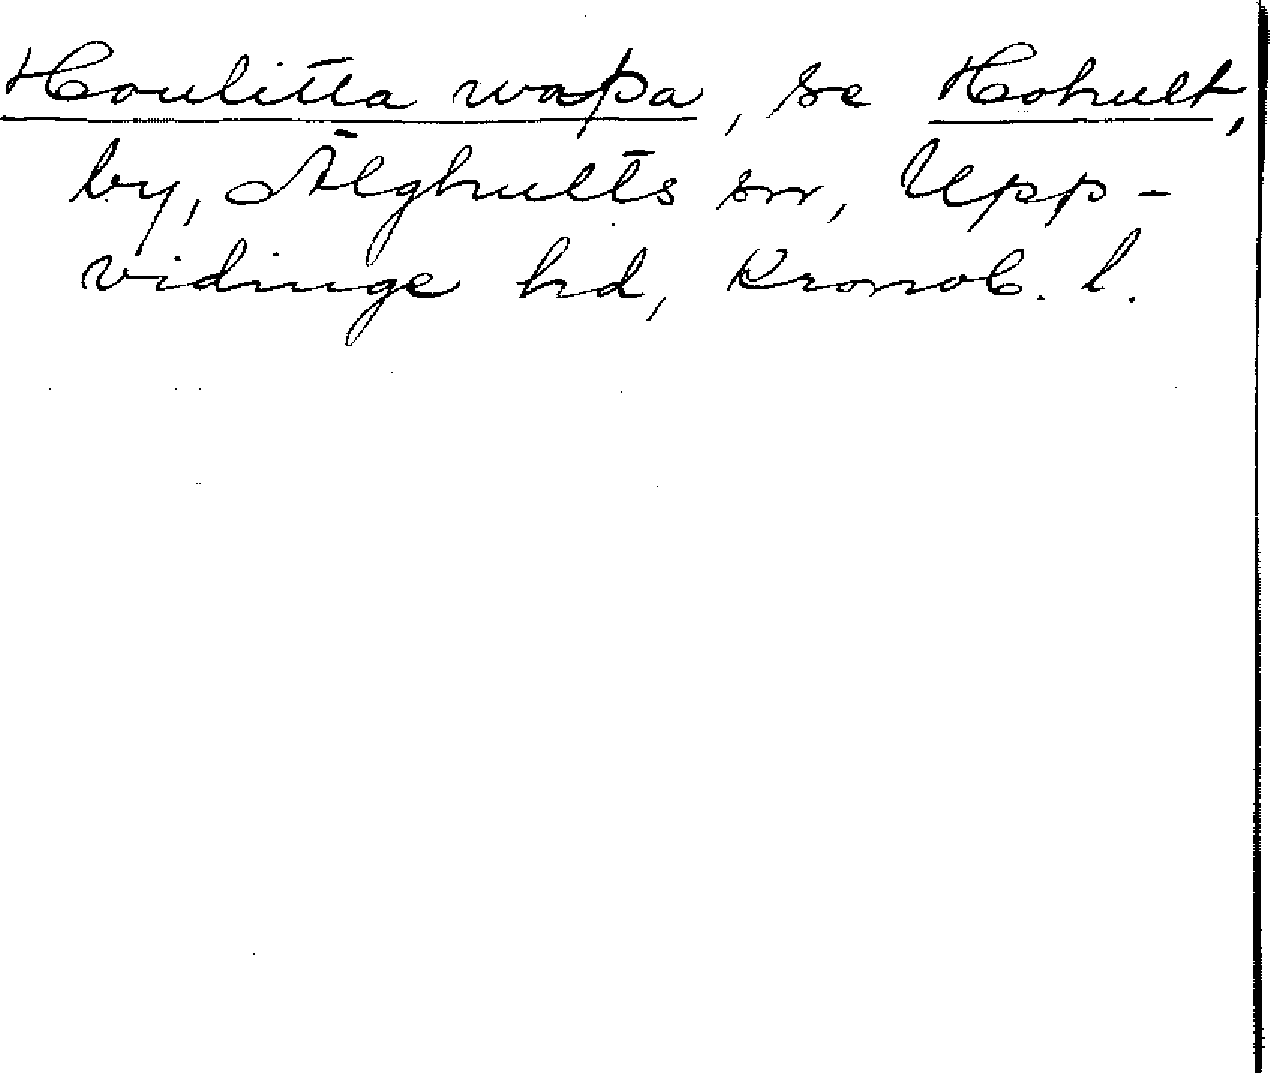 Houlitta wapa, se Hohult,
by, Älghults sn, Upp-
vidinge hd, Kronob. l.